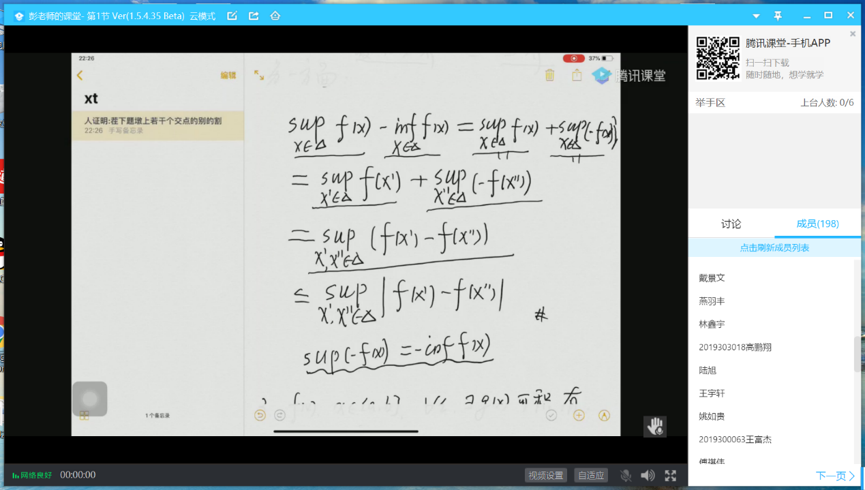 彭老师的课堂- 第1节 Ver(1.5.4.35 Beta) 云模式
22:26
37%
编辑
腾讯课堂
xt
人证明:茬下题增上若干个交点的别的割
22:26 手写备忘录
sup f(x) - inf f(x) = sup f(x) + sup(-f(x))
x∈Δ x∈Δ x∈Δ x∈Δ
= sup f(x') + sup (-f(x''))
x'∈Δ x''∈Δ
= sup (f(x') - f(x''))
x',x''∈Δ
≤ sup |f(x') - f(x'')|
x',x''∈Δ #
sup(-f(x)) = -inf f(x)
1个备忘录
网络良好 00:00:00
视频设置
自适应
腾讯课堂-手机APP
扫一扫下载
随时随地，想学就学
举手区
上台人数: 0/6
讨论
成员(198)
点击刷新成员列表
戴景文
燕羽丰
林鑫宇
2019303018高鹏翔
陆旭
王宇轩
姚如贵
2019300063王富杰
下一页